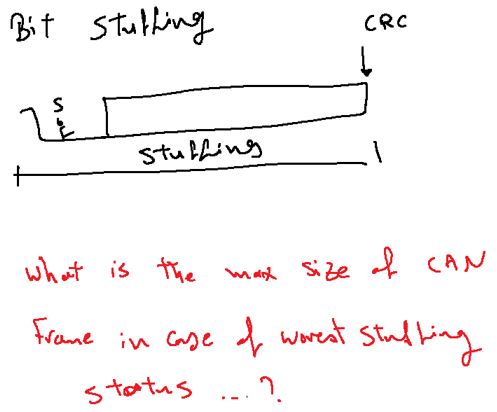 Bit Stuffing
CRC
S
Stuffing
What is the max size of CAN
Frame in case of worest Stuffing
status ...?